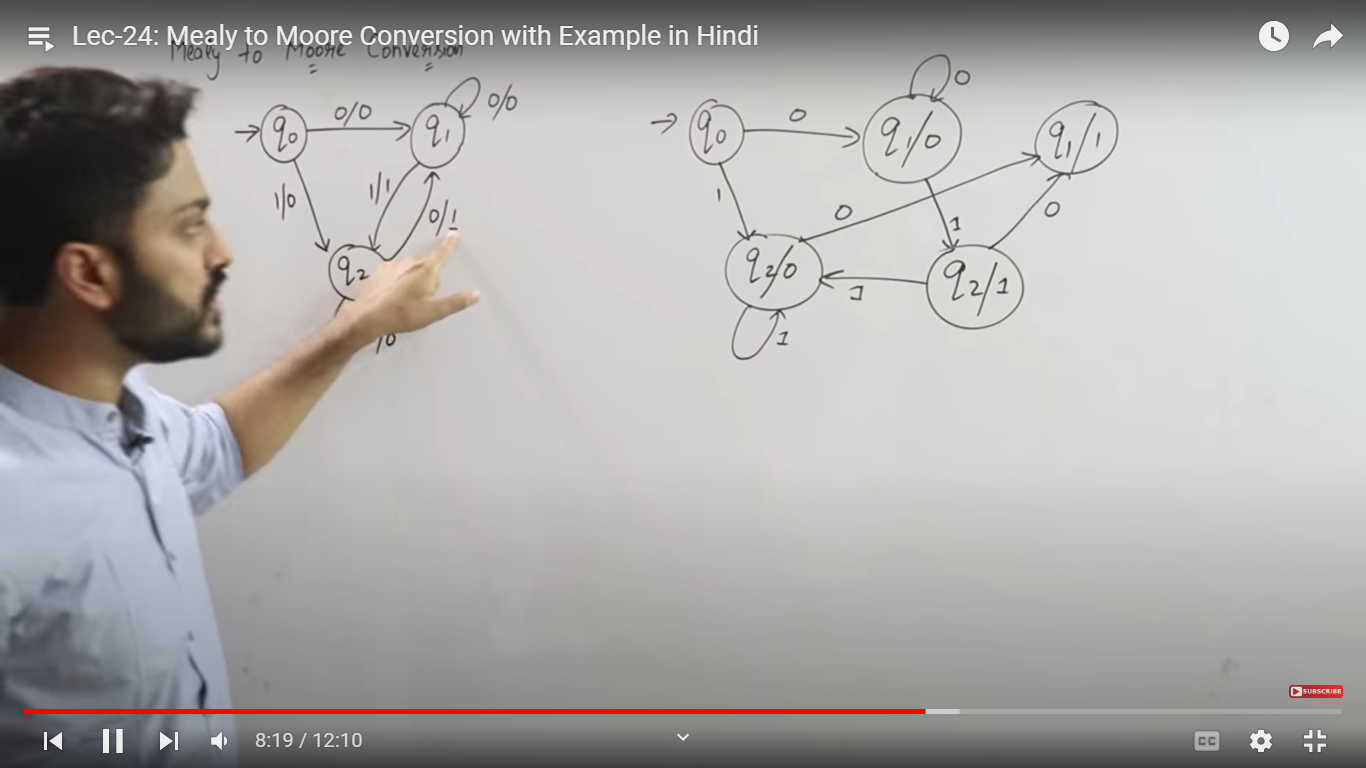 Lec-24: Mealy to Moore Conversion with Example in Hindi
Mealy to Moore Conversion
q0
0/0
q1
0/0
1/0
1/1
0/1
q2
/0
q0
0
q1/0
0
q1/1
1
0
1
0
q2/0
1
q2/1
1
SUBSCRIBE
8:19 / 12:10
CC